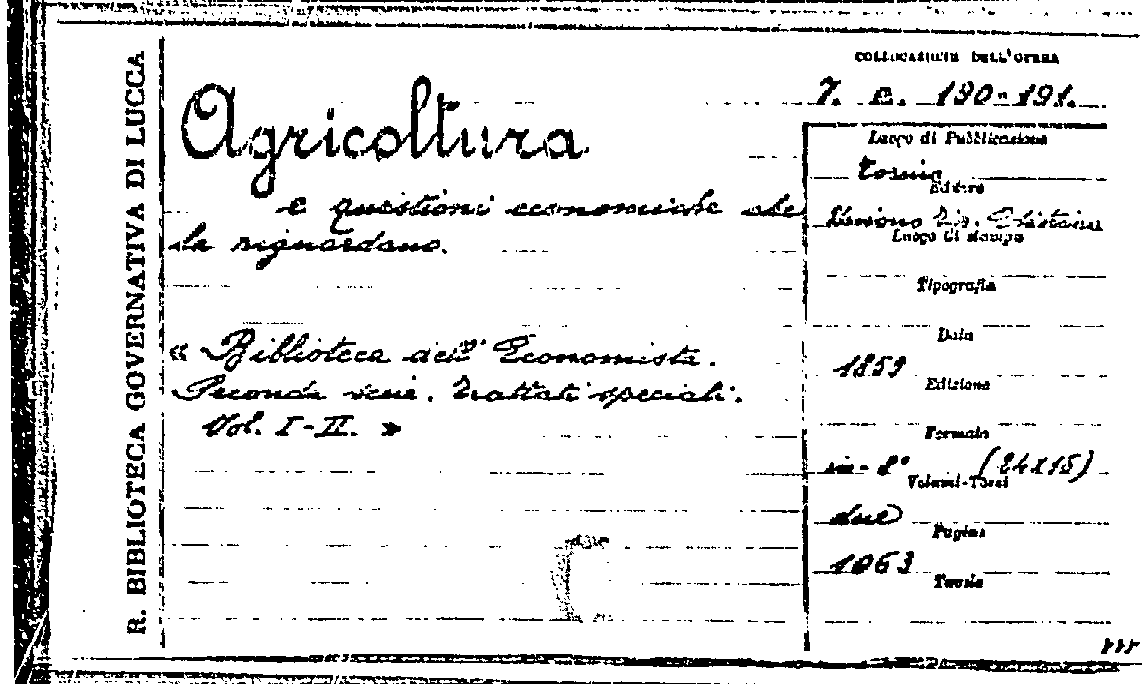 R. BIBLIOTECA GOVERNATIVA DI LUCCA
Agricoltura
e questioni economiche che
la riguardano.
« Biblioteca dell'Economista.
Seconda serie. Trattati speciali.
Vol. I-II. »
COLLOCAZIONE DELL'OPERA
7. c. 190-191.
Luogo di Pubblicazione
Torino
Editore
Unione Tip. Editrice
Luogo di stampa
Tipografia
Data
1859
Edizione
Formato
in-8° (24x15)
Volumi-Tomi
due
Pagine
1063
Tavole